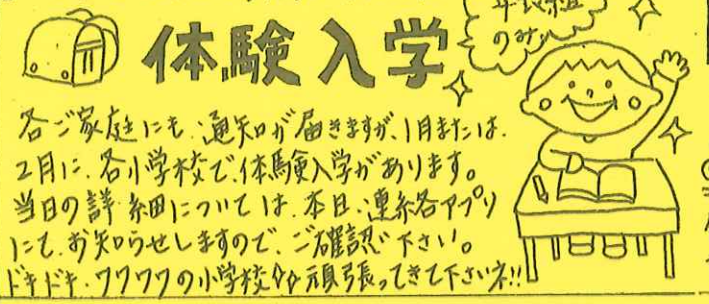 年長組
のみ
体験入学
各ご家庭にも、通知が届きますが、1月または、
2月に、各小学校で、体験入学があります。
当日の詳細については、本日、連絡各アプリ
にて、お知らせしますので、ご確認下さい。
ドキドキ・ワクワクの小学校 頑張ってきて下さいネ!!